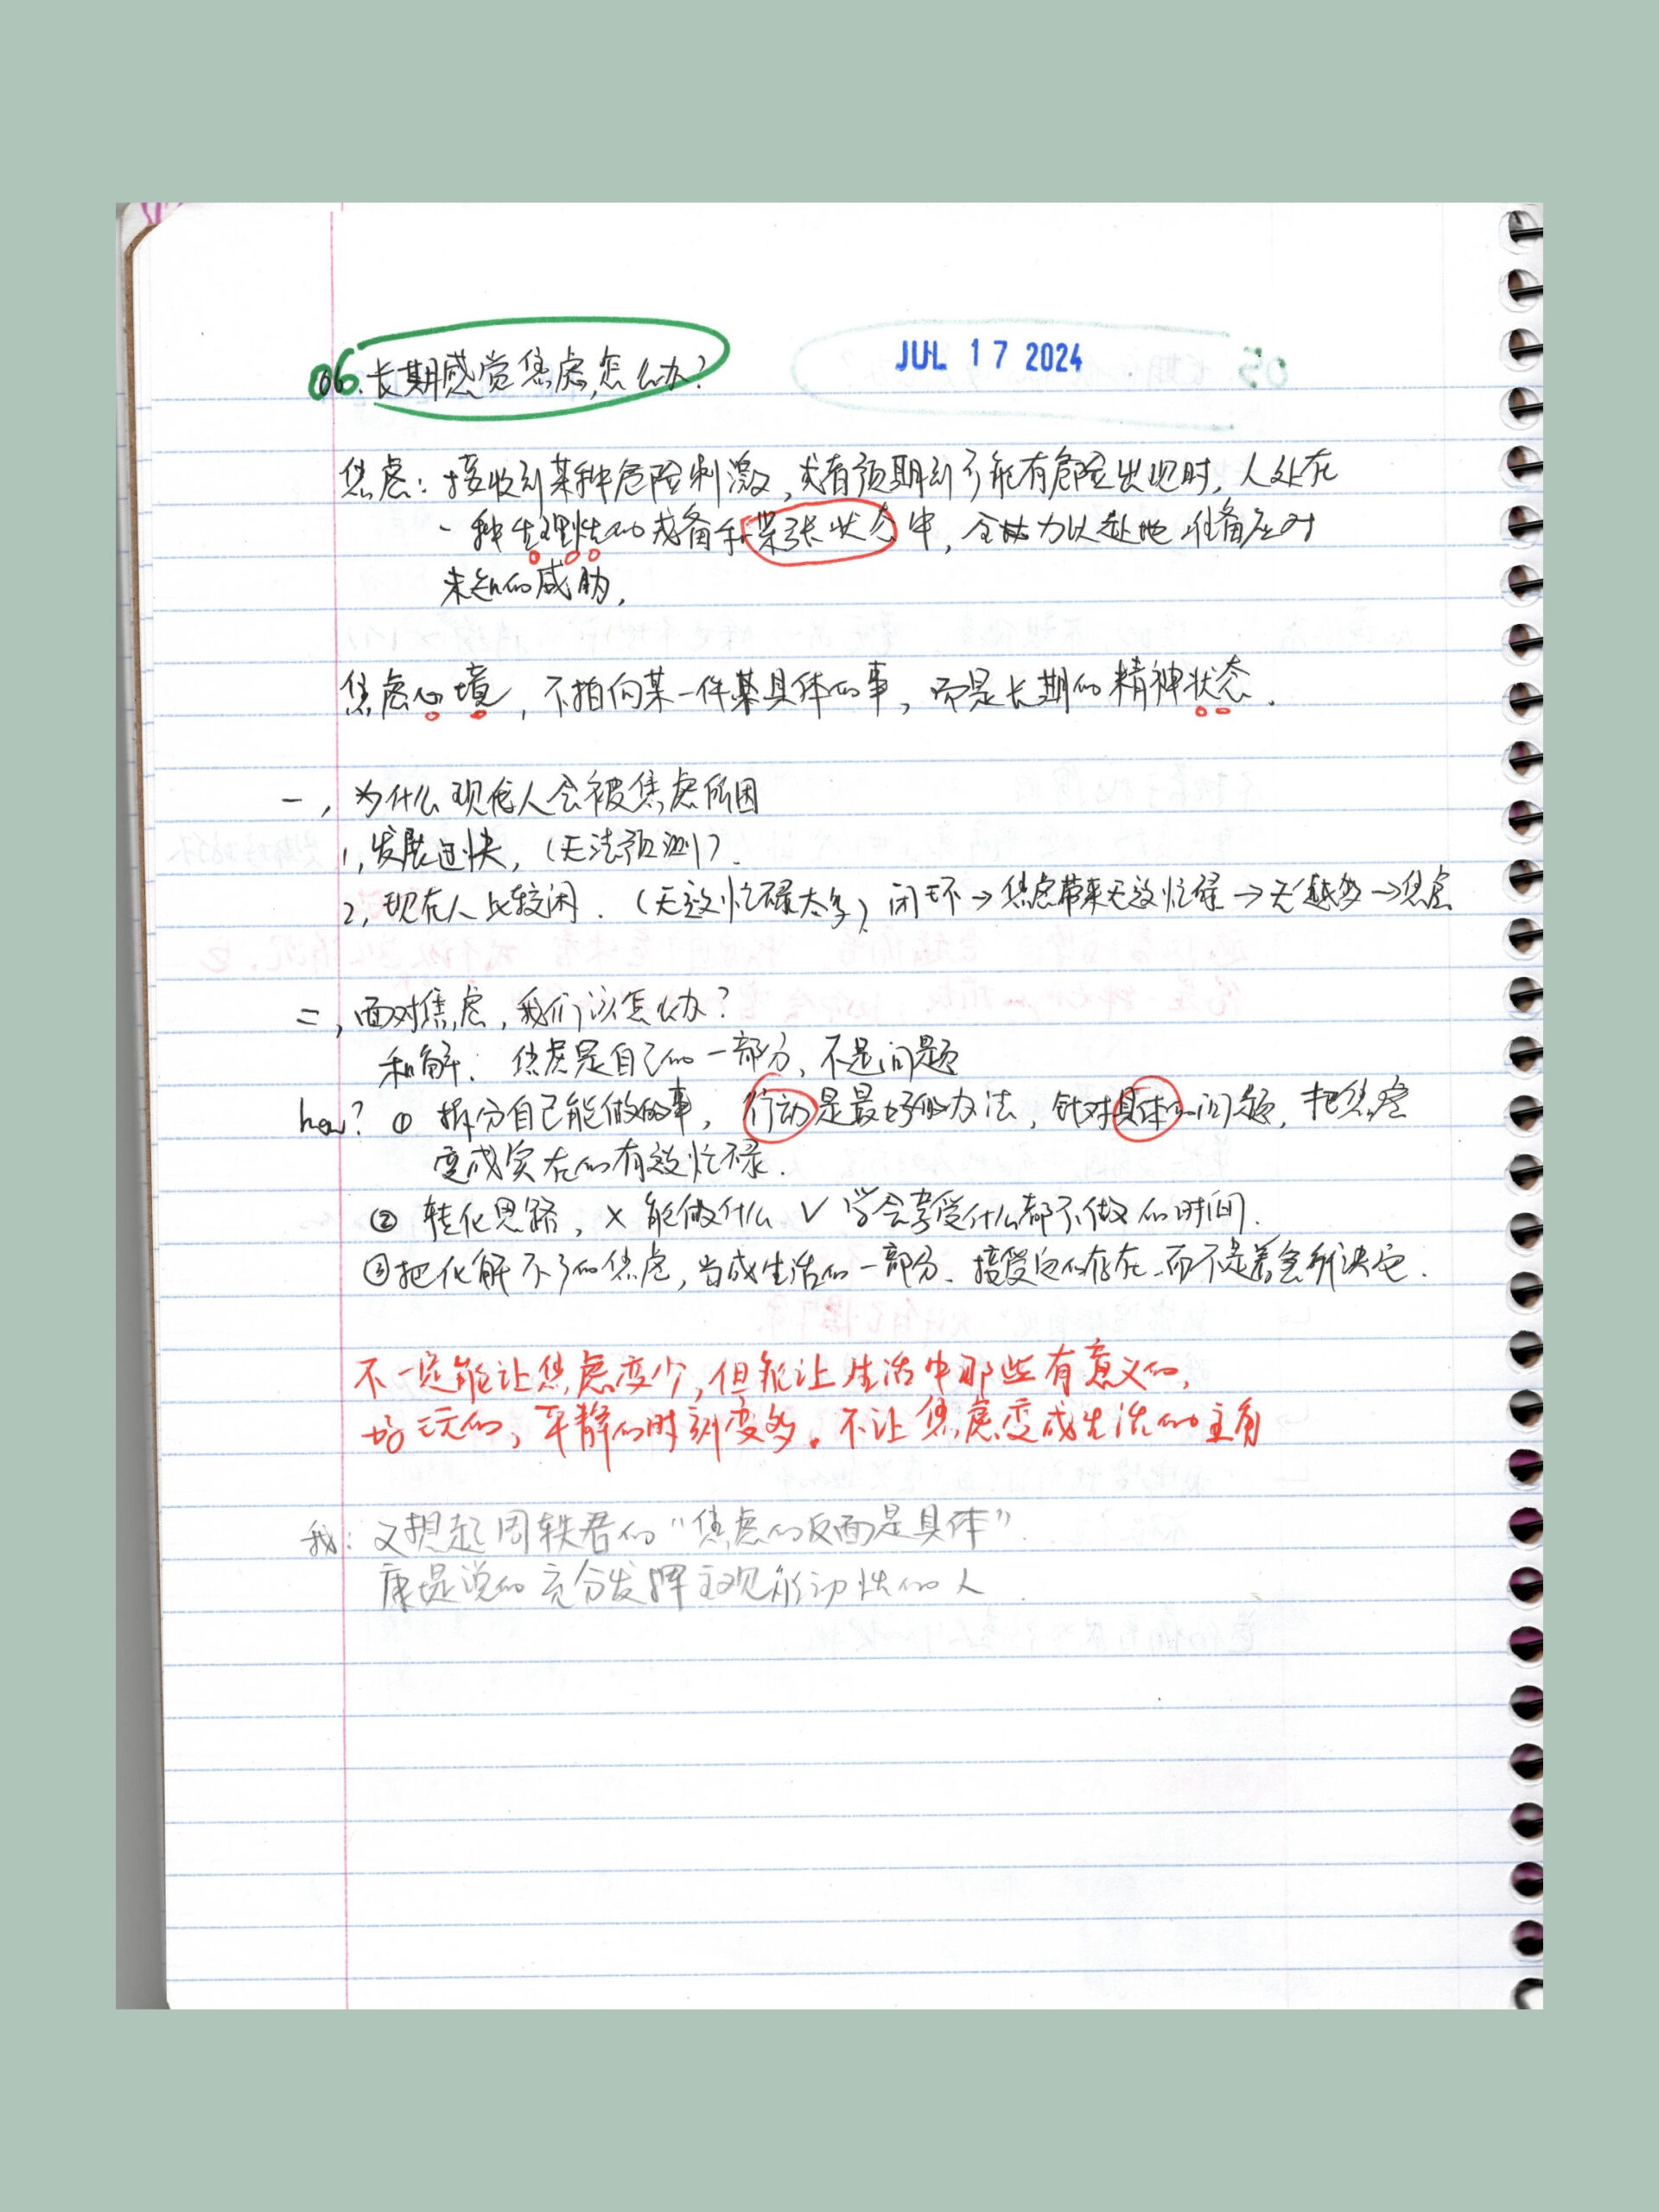 06. 长期感觉焦虑,怎么办?
JUL 17 2024
焦虑: 接收到某种危险刺激, 或者预期到可能有危险出现时, 人处在
一种生理性的戒备和紧张状态中, 全力以赴地准备应对
未知的威胁,
焦虑心境, 不指向某一件某具体的事, 而是长期的精神状态.
一, 为什么现代人会被焦虑所困
1, 发展过快, (无法预测).
2, 现在人比较闲. (无效忙碌太多) 闭环→焦虑带来无效忙碌→无越多→焦虑
二, 面对焦虑, 我们该怎么办?
和解: 焦虑是自己的一部分, 不是问题
how? ① 拆分自己能做的事, 行动是最好的办法, 针对具体的问题, 把焦虑
变成实在的有效忙碌.
② 转化思路, × 能做什么 ✓ 学会享受什么都不做的时间.
③ 把化解不了的焦虑, 当成生活的一部分、接受它的存在、而不是着急解决它.
不一定能让焦虑变少, 但能让生活中那些有意义的,
好玩的, 平静的时刻变多。不让焦虑变成生活的主角
我: 又想起周轶君的“焦虑的反面是具体”.
康堤说的充分发挥主观能动性的人